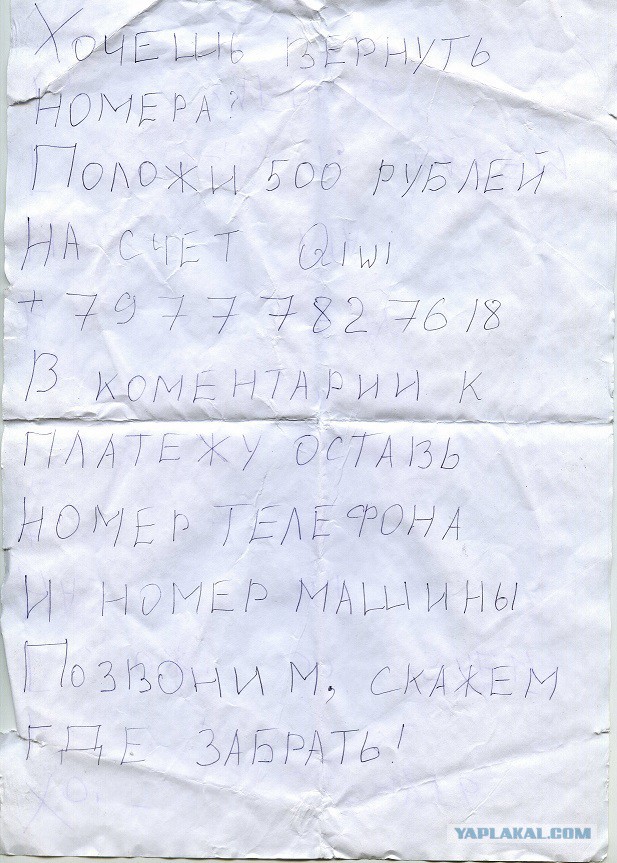 Хочешь вернуть
номера?
Положи 500 рублей
на счет Qiwi
+ 79777827618
В коментарии к
платежу оставь
номер телефона
и номер машины
Позвоним, скажем
где забрать!
YAPLAKAL.COM